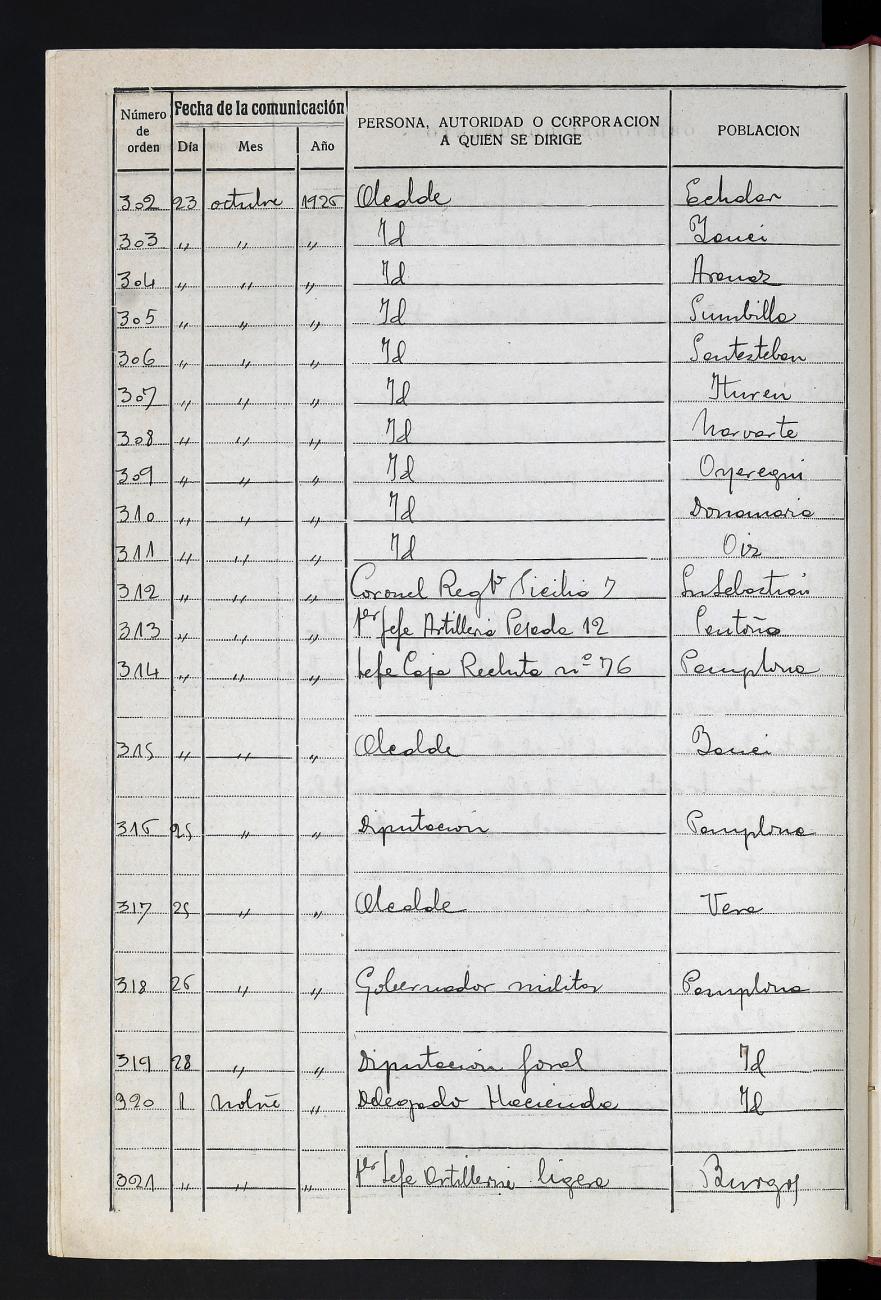 Número de orden Fecha de la comunicación PERSONA, AUTORIDAD O CORPORACION A QUIEN SE DIRIGE POBLACION
Día Mes Año
302 23 octubre 1926 Alcalde Echalar
303 〃 〃 〃 Id Yanci
304 〃 〃 〃 Id Aranaz
305 〃 〃 〃 Id Sumbilla
306 〃 〃 〃 Id Santesteban
307 〃 〃 〃 Id Ituren
308 〃 〃 〃 Id Narvarte
309 〃 〃 〃 Id Oyeregui
310 〃 〃 〃 Id Donamaria
311 〃 〃 〃 Id Oiz
312 〃 〃 〃 Coronel Regto Sicilia 7 Sn Sebastián
313 〃 〃 〃 1er Jefe Artilleria Pesada 12 Santoña
314 〃 〃 〃 Jefe Caja Recluta nº 76 Pamplona
315 〃 〃 〃 Alcalde
316 25 〃 〃 Diputacion Pamplona
317 25 〃 〃 Alcalde Vera
318 26 〃 〃 Gobernador militar Pamplona
319 28 〃 〃 Diputación foral Id
320 1 〃 Delegado Hacienda Id
321 〃 〃 〃 1er Jefe Artilleria ligera Burgos